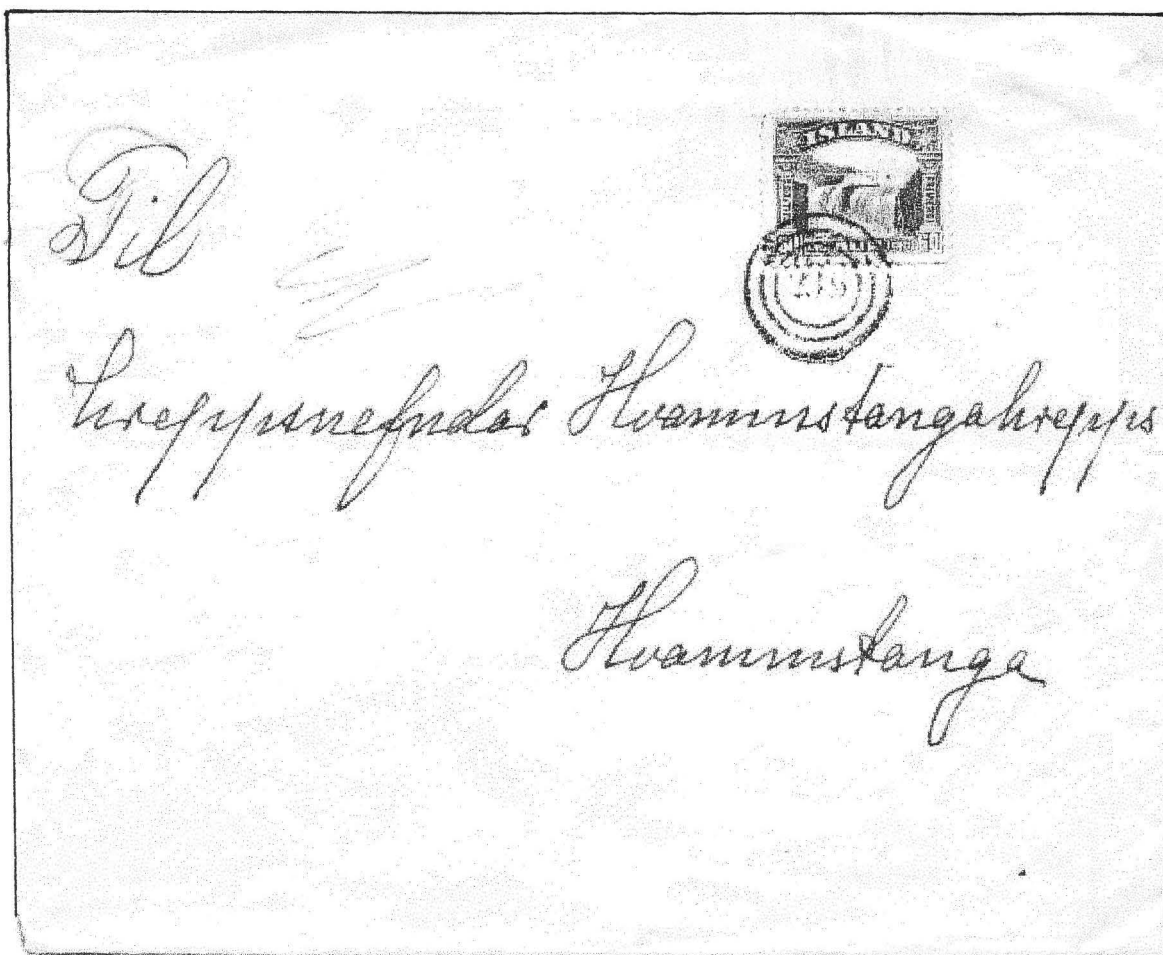 ISLAND
Til
hreppsnefndar Hvammstangahrepps
Hvammstanga